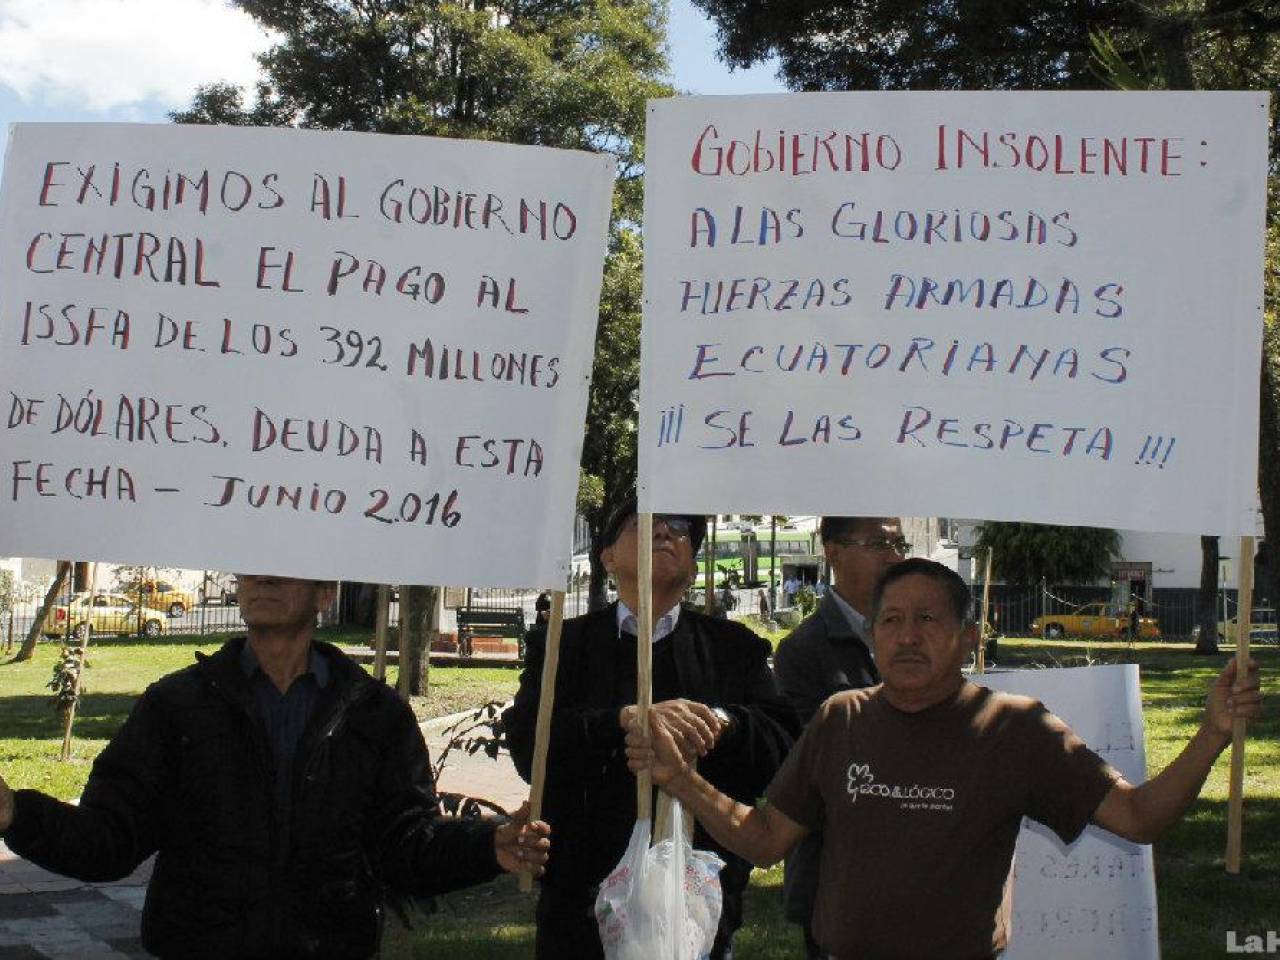 EXIGIMOS AL GOBIERNO
CENTRAL EL PAGO AL
ISSFA DE LOS 392 MILLONES
DE DÓLARES, DEUDA A ESTA
FECHA - JUNIO 2.016
GOBIERNO INSOLENTE:
A LAS GLORIOSAS
FUERZAS ARMADAS
ECUATORIANAS
¡¡¡ SE LAS RESPETA !!!
ECO&LÓGICO
LaH